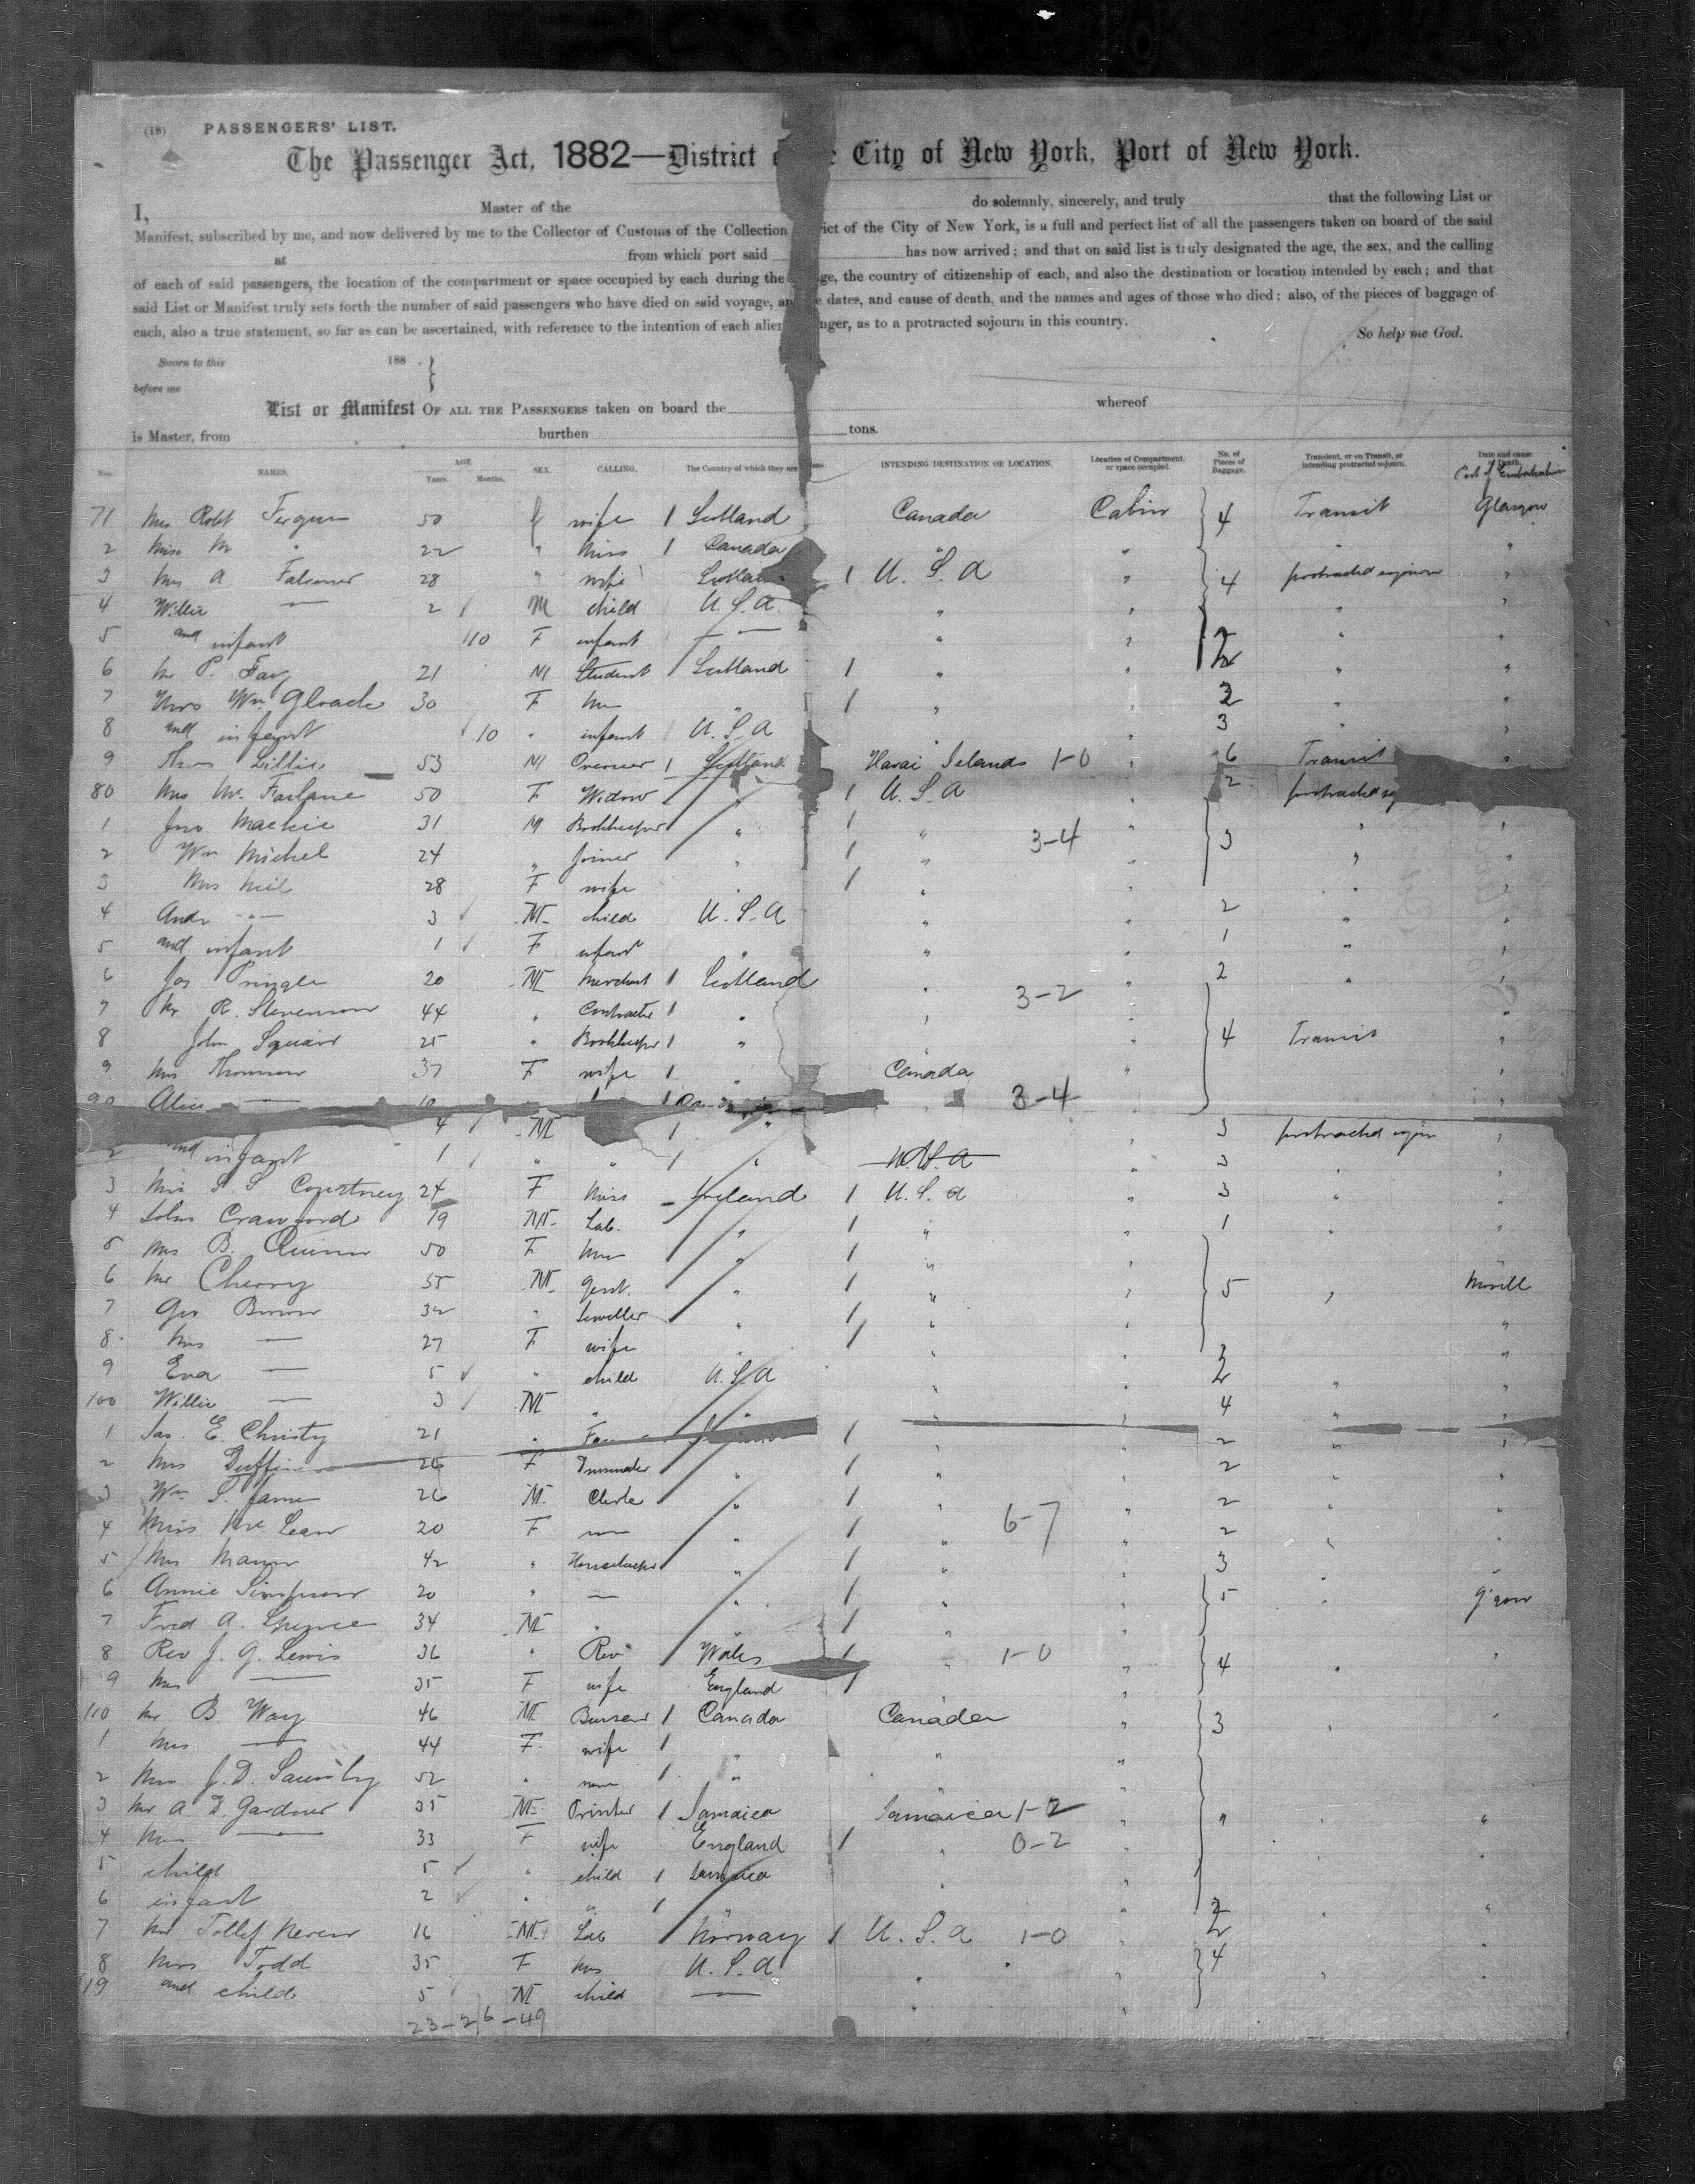 (18) PASSENGERS' LIST.
The Passenger Act, 1882—District City of New York, Port of New York.
I, Master of the do solemnly, sincerely, and truly that the following List or
Manifest, subscribed by me, and now delivered by me to the Collector of Customs of the Collection rict of the City of New York, is a full and perfect list of all the passengers taken on board of the said
at from which port said has now arrived; and that on said list is truly designated the age, the sex, and the calling
of each of said passengers, the location of the compartment or space occupied by each during the ge, the country of citizenship of each, and also the destination or location intended by each; and that
said List or Manifest truly sets forth the number of said passengers who have died on said voyage, an e dates, and cause of death, and the names and ages of those who died: also, of the pieces of baggage of
each, also a true statement, so far as can be ascertained, with reference to the intention of each alien nger, as to a protracted sojourn in this country.
So help me God.
Sworn to this 188 }
before me
List or Manifest OF ALL THE PASSENGERS taken on board the whereof
is Master, from burthen tons.
Nos. NAMES. AGE Years. Months. SEX. CALLING. The Country of which they are INTENDING DESTINATION OR LOCATION. Location of Compartment, or space occupied. No. of Pieces of Baggage. Transient, or on Transit, or intending protracted sojourn. Date and cause of Death. Port of Embarkation
71 Mrs Robt 50 f wife 1 Scotland Canada Cabin 4 Transit Glasgow
2 Miss M " 22 " Miss 1 Canada " " " "
3 Mrs A. Falconer 28 " wife 1 U. S. A " 4 protracted "
4 Willie — 2 M child U. S. A. " " " "
5 and infant 10 F infant — " " 2 " "
6 Mr P. Fay 21 M Student Scotland 1 " " " "
7 Mrs Wm 30 F " 1 " " 2 " "
8 and infant 10 " infant U. S. A " " 3 " "
9 53 M Overseer 1 Scotland Islands 1-0 " 6 Transit "
80 Mrs Mc Farlane 50 F Widow " 1 U. S. A " 2 protracted
1 Jno Mackie 31 M Bookkeeper " 1 " 3-4 " 3 " "
2 Wm Michel 24 " Joiner " 1 " " " "
3 Mrs Neil 28 F wife " 1 " " " "
4 Andr -"- 3 M child U. S. A " " 2 " "
5 and infant 1 F infant " " " 1 " "
6 Jas Pringle 20 M Merchant 1 Scotland " " 2 " "
7 Mr R. Stevenson 44 " Contractor 1 " " 3-2 " "
8 John 25 " Bookkeeper 1 " " " 4 Transit "
9 Mrs Thomson 37 F wife 1 " Canada " "
90 Alice — 1 " 3-4 "
4 M 1 " " 3 protracted "
2 and infant 1 " " 1 " U. S. A " 3 " "
3 Miss S. S Courtney 24 F Miss Ireland 1 U. S. A " 3 " "
4 John Crawford 19 M Lab. " 1 " " 1 " "
5 Mrs B. Quinn 50 F " 1 " " "
6 Mr Cherry 55 M Gent. " 1 " " 5 " Moville
7 Geo Brown 32 " Jeweller " 1 " " "
8 Mrs — 27 F wife " 1 " " "
9 Eva — 5 " child U. S. A " " 2 " "
100 Willie — 3 M " " " " 4 " "
1 Jas. E. Christy 21 " 1 " " 2 " "
2 Mrs 26 F " 1 " " 2 " "
3 Wm S. 26 M. Clerk " 1 " " 2 " "
4 Miss Mc Lean 20 F " 1 " 6-7 " 2 " "
5 Mrs 42 " Housekeeper " 1 " " 3 " "
6 Annie Simpson 20 " — " 1 " " 5 " G'gow
7 Fred A. Spence 34 M " " 1 " "
8 Rev J. G. Lewis 36 " Rev Wales 1 " 1-0 " 4 " "
9 Mrs — 35 F wife England 1 "
110 Mr B. Way 46 M 1 Canada Canada " 3 " "
1 Mrs — 44 F. wife 1 " " "
2 Mrs J. D. 52 " 1 " " "
3 Mr A. D. Gardner 35 M Printer 1 Jamaica Jamaica 1-2 " " " "
4 Mrs — 33 F wife England 1 " 0-2 "
5 child 5 " child 1 Jamaica " " "
6 infant 2 " " 1 " " 2 " "
7 Mr 16 M Lab Norway 1 U. S. A 1-0 "
8 Mrs Todd 35 F Mrs U. S. A " " 4 " "
19 and child 5 M child — " "
23-26-49